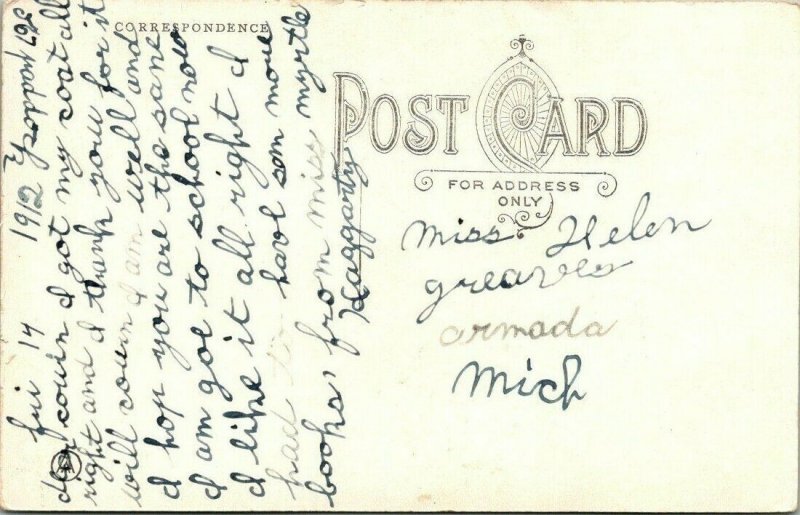 CORRESPONDENCE
fri 14 1912
dear cousin I got my coat all
right and I thank youw for it
will cousin I am well and
I hop you are the sane
I am goe to school now
I like it all right I
had to have som more
books, from miss myrtle
Haggarty
POST CARD
FOR ADDRESS
ONLY
miss Helen
greaves
armada
Mich